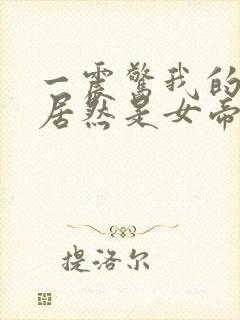 一震惊我的
居然是女帝
提洛尔